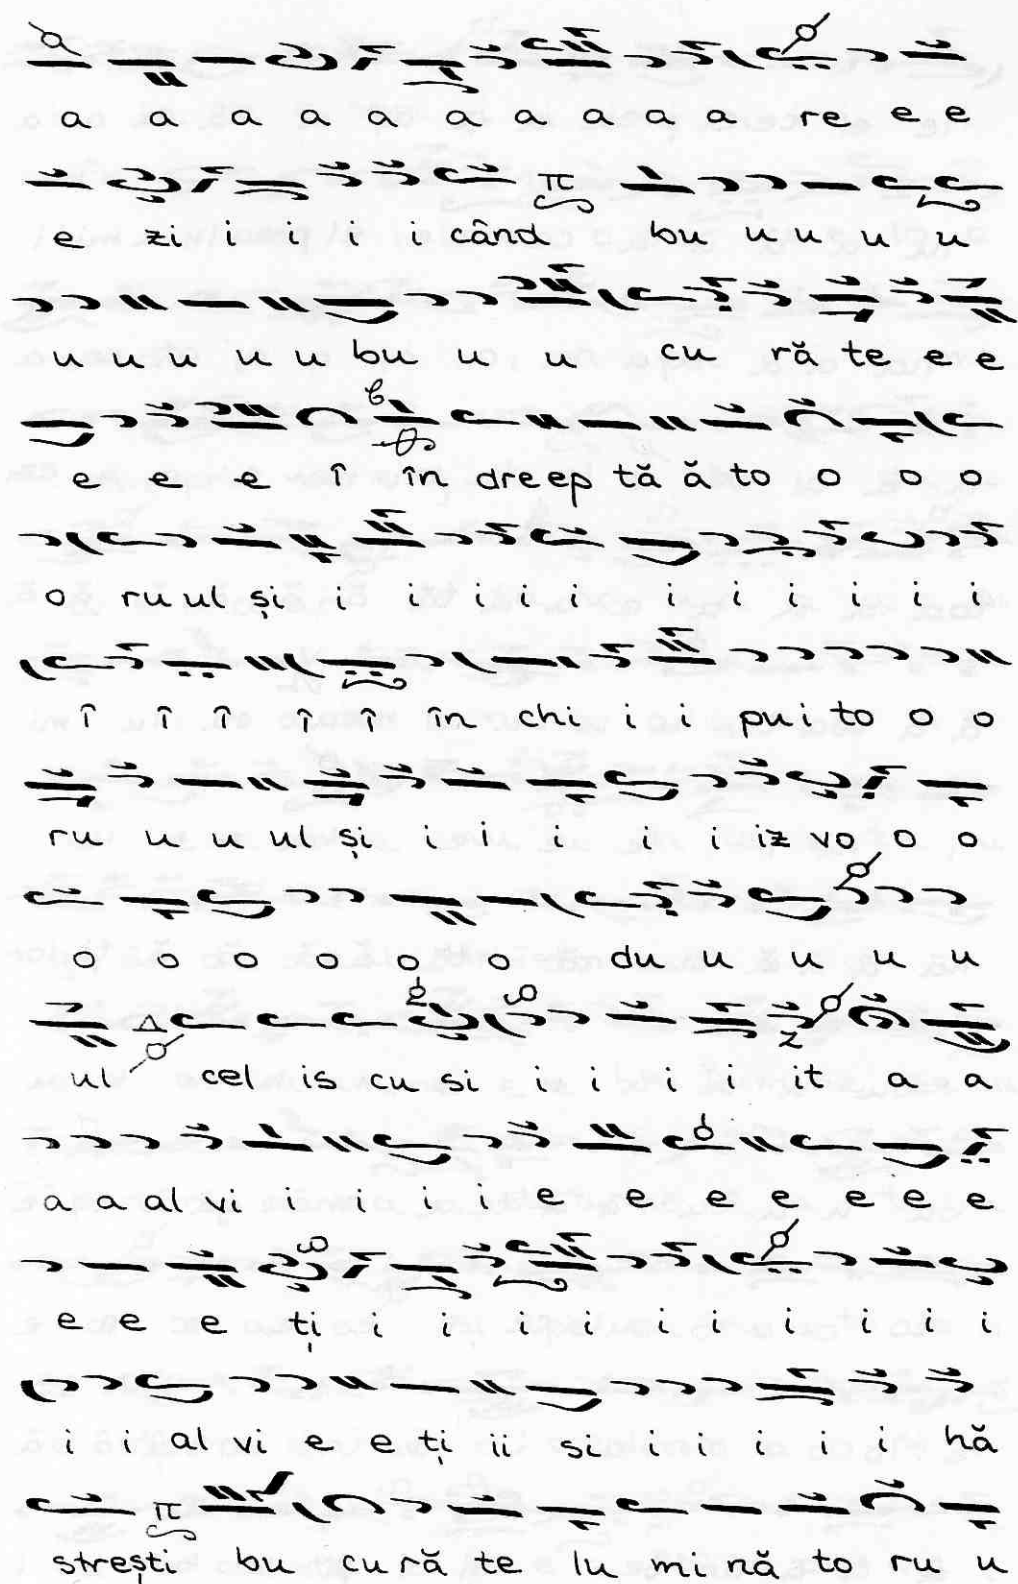 a a a a a a a a a a re e e
e zi i i i i când bu u u u u
u u u u u bu u u cu ră te e e
e e e î în dre ep tă ă to o o o
o ru ul și i i i i i i i i i
î î î î î în chi i i pui to o o
ru u u ul și i i i i i iz vo o o
o o o o o o du u u u u
ul cel is cu si i i i i it a a
a a al vi i i i i e e e e e e e
e e e ți i i i i i i i i i
i i al vi e e ți ii si i i i i i hă
strești bu cu ră te lu mi nă to ru u